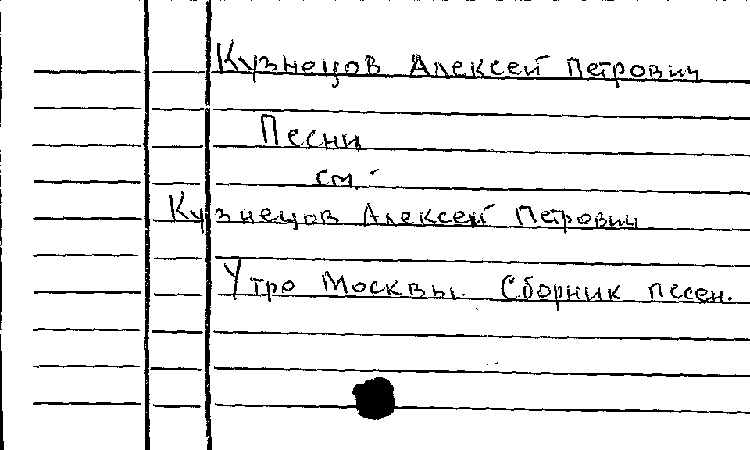 Кузнецов Алексей Петрович
Песни
см.
Кузнецов Алексей Петрович
Утро Москвы. Сборник песен.